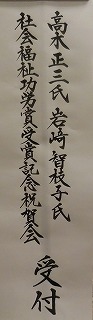 高木正三氏 岩崎智枝子氏
社会福祉功労賞受賞記念祝賀会 受付